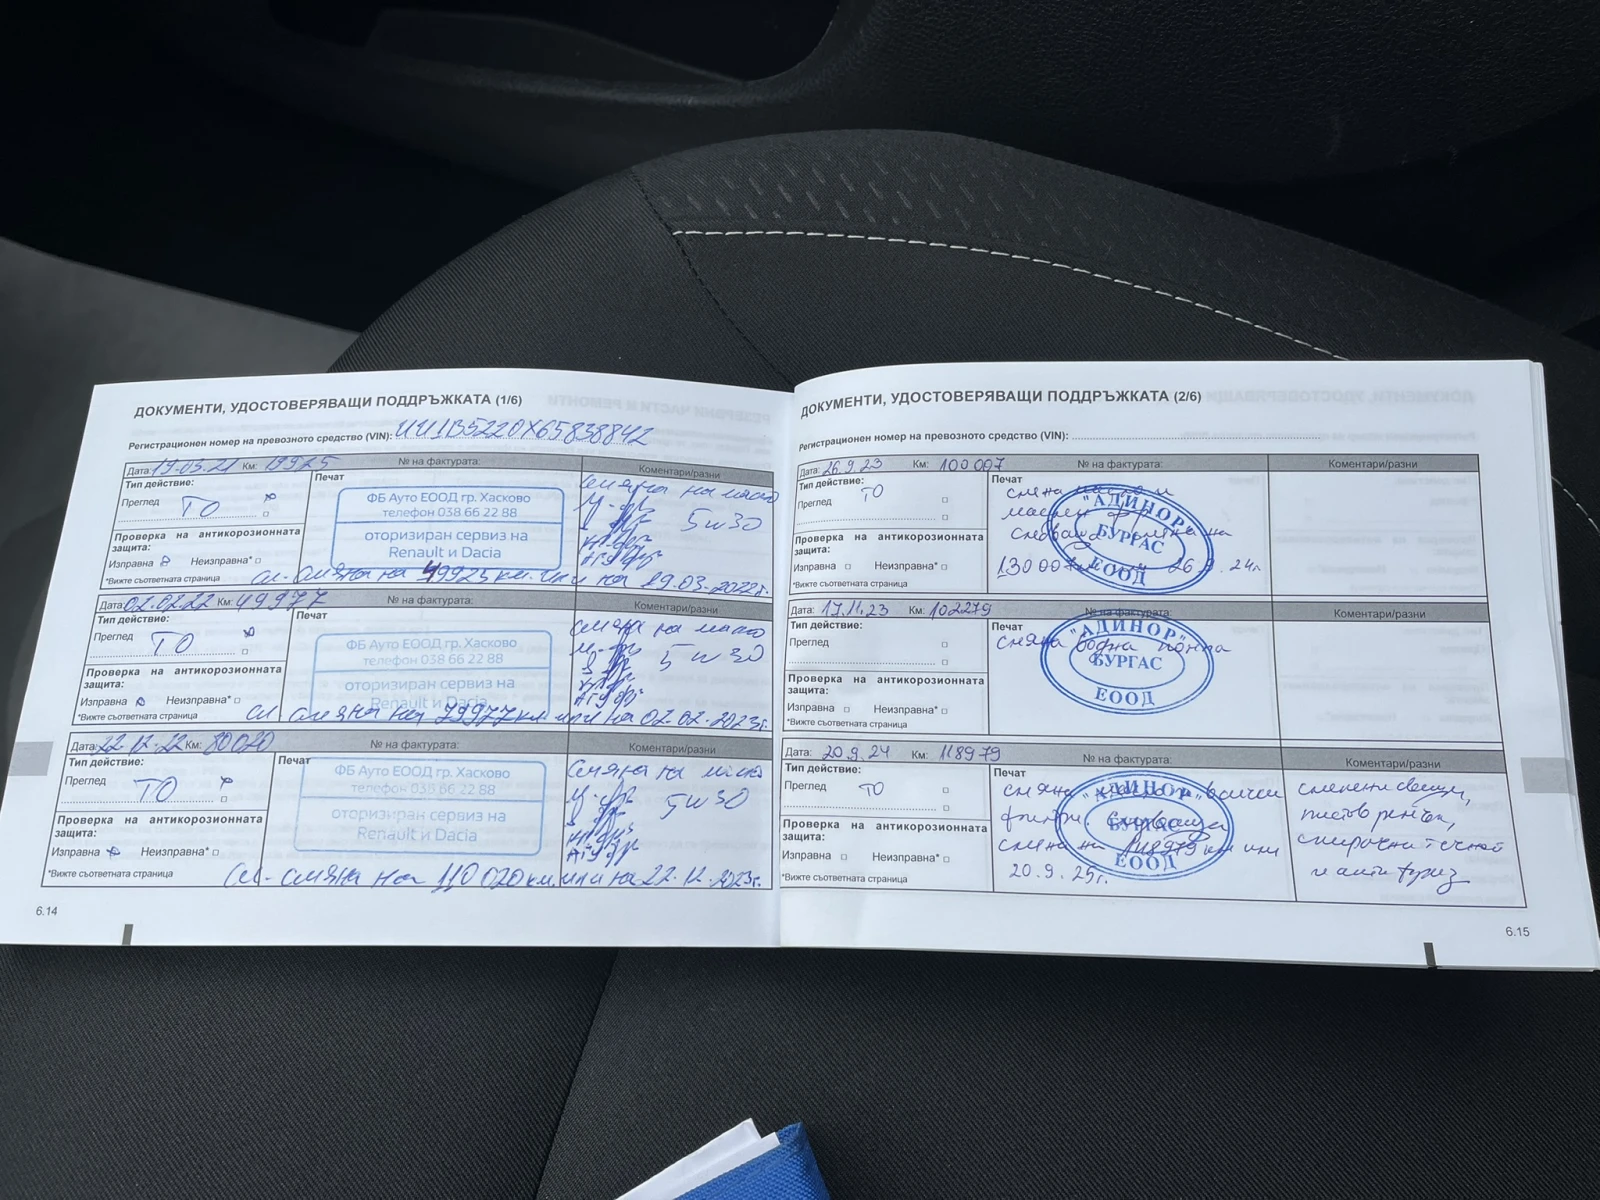 ДОКУМЕНТИ, УДОСТОВЕРЯВАЩИ ПОДДРЪЖКАТА (1/6)
Регистрационен номер на превозното средство (VIN): UU1B5220X65838842
Дата: 19.03.21 Км: 19925 № на фактурата: Коментари/разни
Тип действие: Печат
Преглед ТО
ФБ Ауто ЕООД гр. Хасково
телефон 038 66 22 88
оторизиран сервиз на
Renault и Dacia
смяна на масло
5w30
Проверка на антикорозионната
защита:
Изправна Неизправна*
*Вижте съответната страница
сл. смяна на 49925 км. или на 19.03.2022г.
Дата: 02.02.22 Км: 49977 № на фактурата: Коментари/разни
Тип действие: Печат
Преглед ТО
ФБ Ауто ЕООД гр. Хасково
телефон 038 66 22 88
оторизиран сервиз на
Renault и Dacia
смяна на масло
5w30
Проверка на антикорозионната
защита:
Изправна Неизправна*
*Вижте съответната страница
сл. смяна на 79977 км. или на 02.02.2023г.
Дата: 22.12.22 Км: 80020 № на фактурата: Коментари/разни
Тип действие: Печат
Преглед ТО
ФБ Ауто ЕООД гр. Хасково
телефон 038 66 22 88
оторизиран сервиз на
Renault и Dacia
смяна на масло
5w30
Проверка на антикорозионната
защита:
Изправна Неизправна*
*Вижте съответната страница
сл. смяна на 110 020 км. или на 22.12.2023г.
6.14
ДОКУМЕНТИ, УДОСТОВЕРЯВАЩИ ПОДДРЪЖКАТА (2/6)
Регистрационен номер на превозното средство (VIN):
Дата: 26.9.23 Км: 100 007 № на фактурата: Коментари/разни
Тип действие: Печат
Преглед ТО
смяна масло и
маслен
"АДИНОР"
БУРГАС
ЕООД
на
130 007 26.9.24г
Проверка на антикорозионната
защита:
Изправна Неизправна*
*Вижте съответната страница
Дата: 17.11.23 Км: 102279 № на фактурата: Коментари/разни
Тип действие: Печат
Преглед
смяна водна помпа
"АДИНОР"
БУРГАС
ЕООД
Проверка на антикорозионната
защита:
Изправна Неизправна*
*Вижте съответната страница
Дата: 20.9.24 Км: 118979 № на фактурата: Коментари/разни
Тип действие: Печат
Преглед ТО
смяна всички
филтри. следваща
смяна на 148979 км или
20.9.25г.
"АДИНОР"
БУРГАС
ЕООД
сменени свещи,
пистов ремък,
спирачна течност
и антифриз
Проверка на антикорозионната
защита:
Изправна Неизправна*
*Вижте съответната страница
6.15